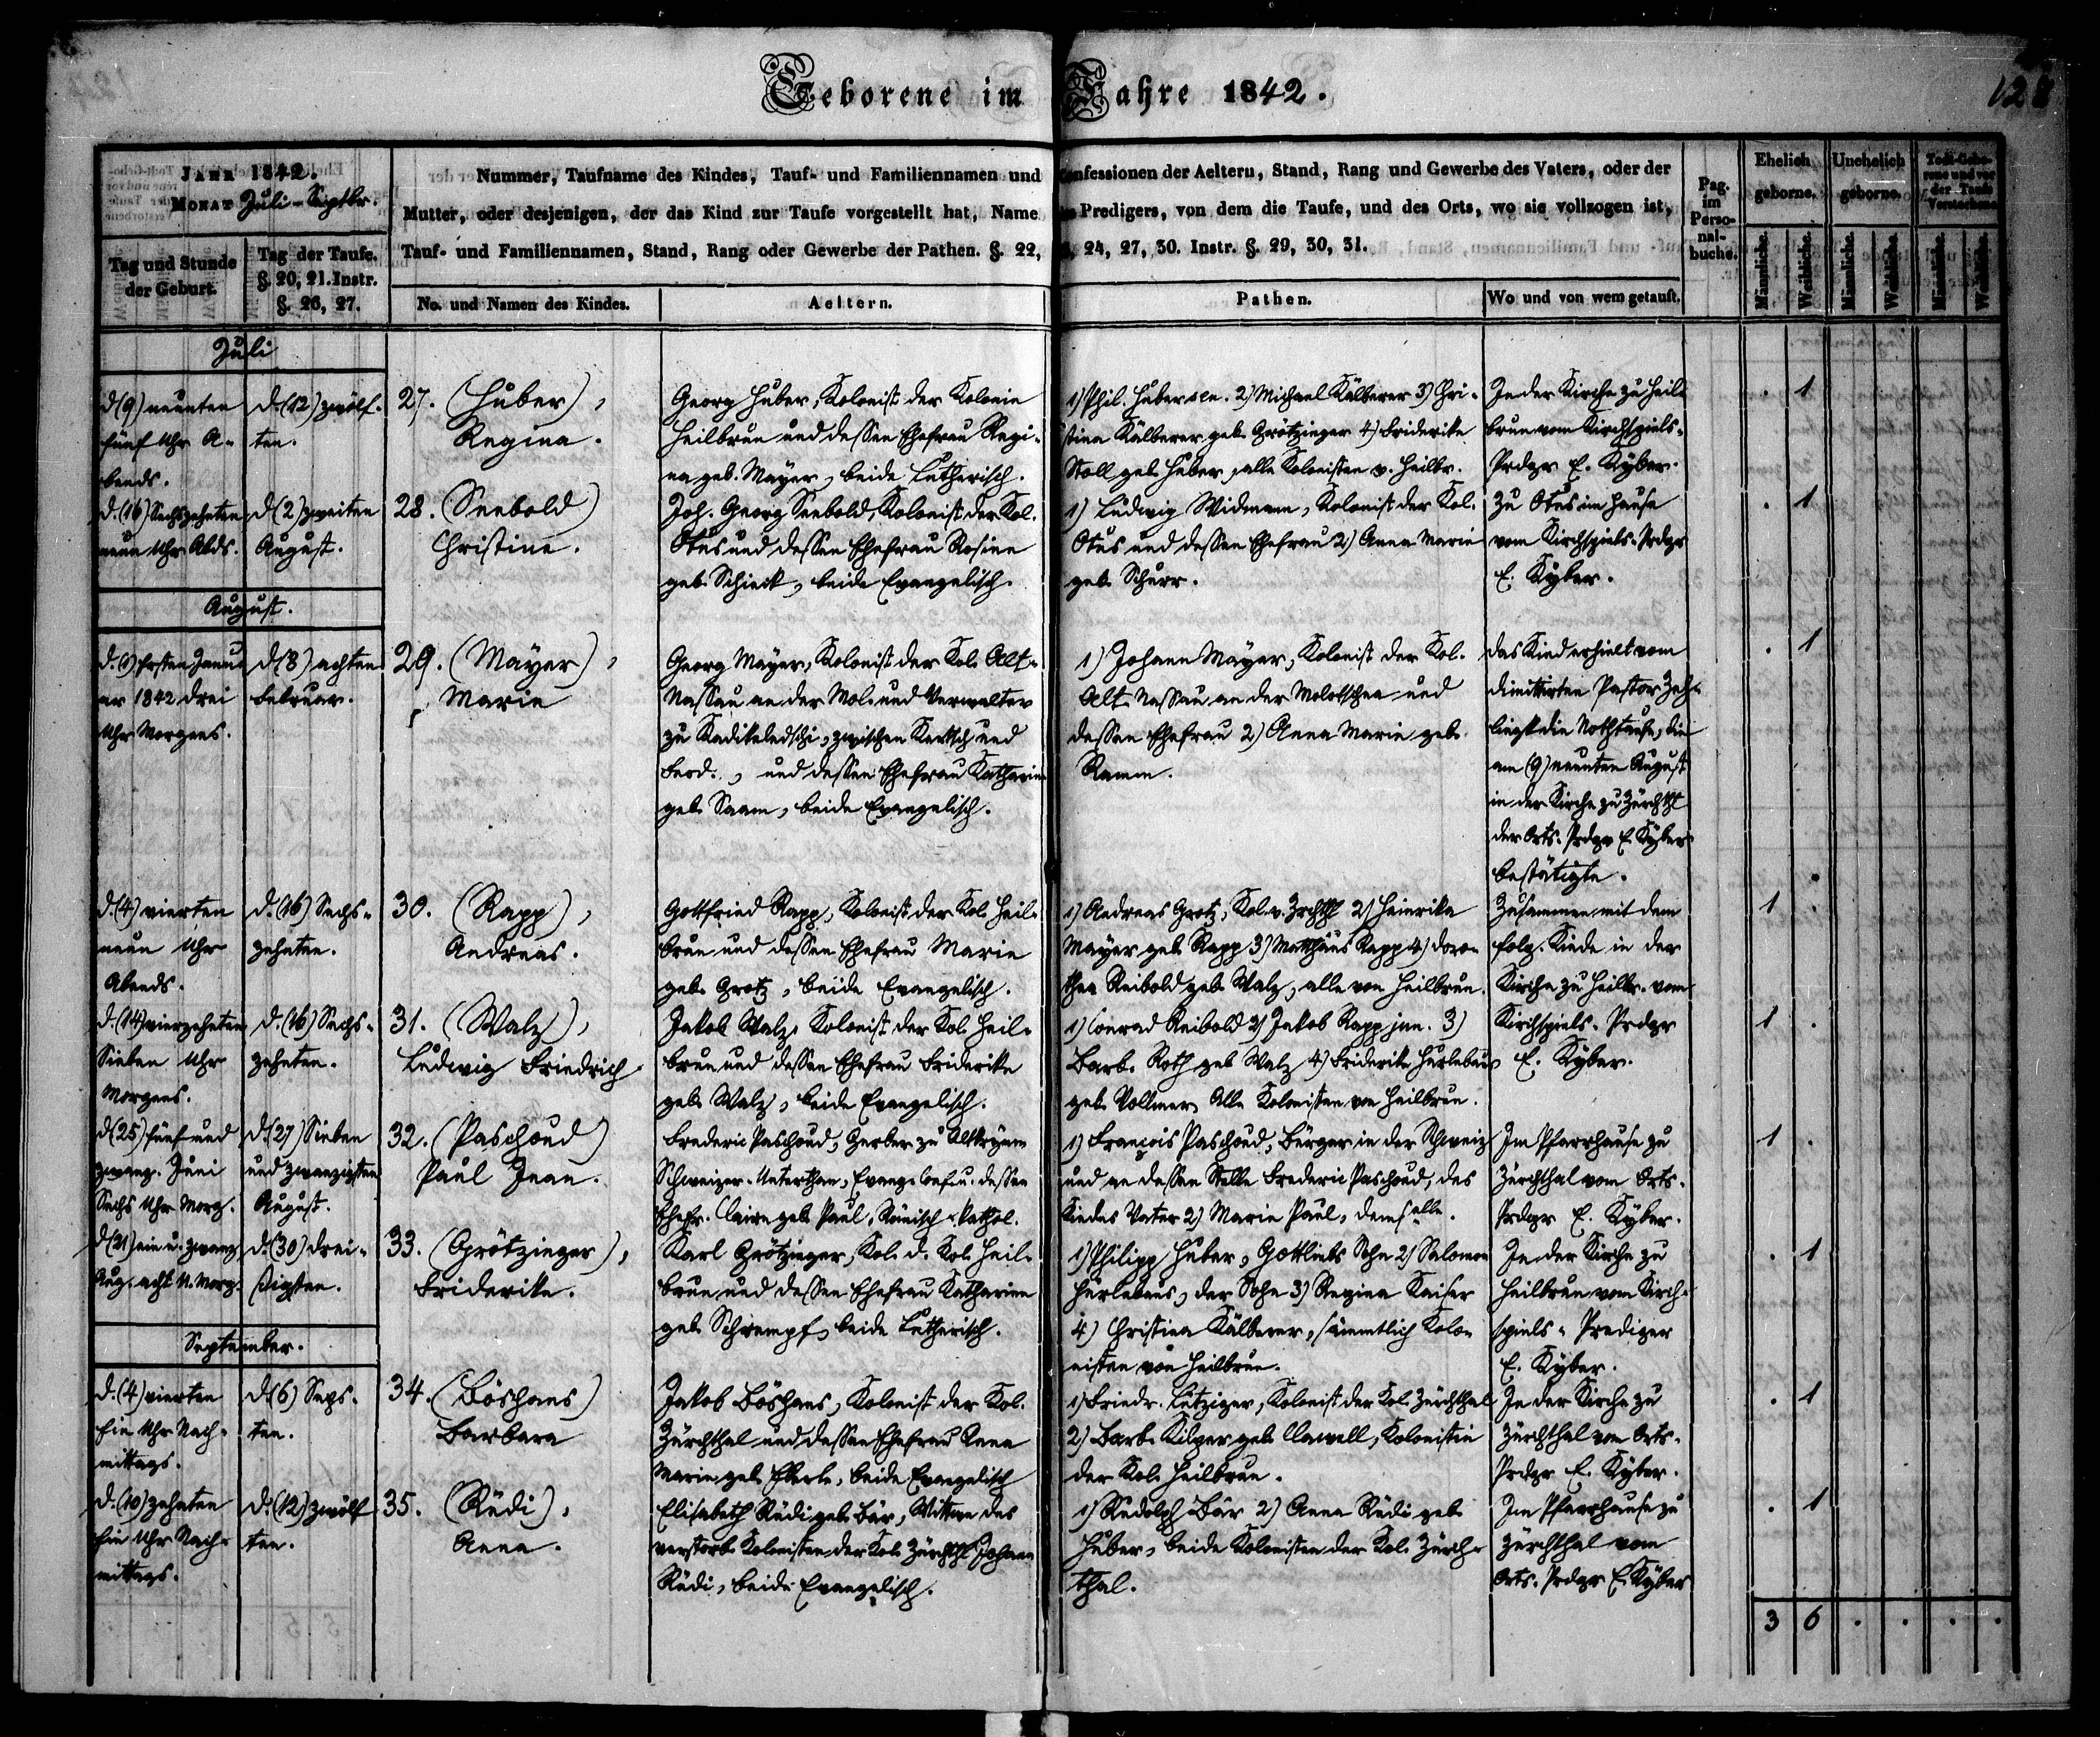 Geborene im Jahre 1842.
128
JAHR 1842.
MONAT Juli-Septbr.
Tag und Stunde
der Geburt.
Tag der Taufe.
§. 20, 21. Instr.
§. 26, 27.
Nummer, Taufname des Kindes, Tauf- und Familiennamen und Confessionen der Aeltern, Stand, Rang und Gewerbe des Vaters, oder der
Mutter, oder desjenigen, der das Kind zur Taufe vorgestellt hat, Name des Predigers, von dem die Taufe, und des Orts, wo sie vollzogen ist,
Tauf- und Familiennamen, Stand, Rang oder Gewerbe der Pathen. §. 22, 24, 27, 30. Instr. §. 29, 30, 31.
No. und Namen des Kindes.
Aeltern.
Pathen.
Wo und von wem getauft.
Pag.
im
Perso-
nal-
buche.
Ehelich
geborne.
Unehelich
geborne.
Todt-Gebo-
rene und vor
der Taufe
Verstorbene
Männliche.
Weibliche.
Männliche.
Weibliche.
Männliche.
Weibliche.
Juli
d (9) neunten
fünf Uhr A-
bends.
d. (12) zwölf-
ten.
27. (Huber),
Regina.
Georg Huber, Kolonist der Kolonie
Heilbrun und dessen Ehefrau Regi-
na geb. Mayer, beide Lutherisch.
1) Phil. Huber sen. 2) Michael Kälberer 3) Chri-
stina Kälberer geb. Grötzinger 4) Friderike
Stoll geb. Huber, alle Kolonisten v. Heilbr.
In der Kirche zu Heil-
brun vom Kirchspiels-
Prdgr E. Kyber.
. 1
d. (16) Sechzehnten
neun Uhr Abds.
d (2) zweiten
August.
28. (Seebold)
Christine.
Joh. Georg Seebold, Kolonist der Kol.
Otus und dessen Ehefrau Rosine
geb. Schieck, beide Evangelisch.
1) Ludwig Widmann, Kolonist der Kol.
Otus und dessen Ehefrau 2) Anna Marie
geb. Schurr.
Zu Otus im Hause
vom Kirchspiels-Prdgr
E. Kyber.
. 1
August.
d. (1) Ersten Janu-
ar 1842 drei
Uhr Morgens.
d (8) achten
Februar.
29. (Mayer),
Marie
Georg Mayer, Kolonist der Kol. Alt-
Nassau an der Mol. und Verwalter
zu Kadikeledschi, zwischen Kertsch und
Feod., und dessen Ehefrau Katharine
geb. Saam, beide Evangelisch.
1) Johann Mayer, Kolonist der Kol.
Alt-Nassau an der Molotschna und
dessen Ehefrau 2) Anna Marie geb.
Ramm.
das Kind erhielt vom
dimittirten Pastor
die Nothtaufe, die
am (9) neunten August
in der Kirche zu Zürchthl
der Orts-Prdgr E. Kyber
bestätigte.
. 1
d. (4) vierten
neun Uhr
Abends.
d. (16) Sechs-
zehnten.
30. (Rapp),
Andreas.
Gottfried Rapp, Kolonist der Kol. Heil-
brun und dessen Ehefrau Marie
geb. Grotz, beide Evangelisch.
1) Andreas Grotz, Kol. v. Zrchthl 2) Heinrike
Mayer geb. Rapp 3) Matthäus Rapp 4) Doro-
thea Reibold geb. Walz, alle von Heilbrun.
Zusammen mit dem
folg. Kinde in der
Kirche zu Heilbr. vom
1 .
d. (14) vierzehnten
Sieben Uhr
Morgens.
d. (16) Sechs-
zehnten.
31. (Walz),
Ludwig Friedrich
Jakob Walz, Kolonist der Kol. Heil-
brun und dessen Ehefrau Friderike
geb. Walz, beide Evangelisch.
1) Conrad Reibold 2) Jakob Rapp jun. 3)
Barb. Roth geb. Walz 4) Friderike Hurlebaus
geb. Vollmer. Alle Kolonisten von Heilbrun.
Kirchspiels-Prdgr
E. Kyber.
1 .
d (25) fünf und
zwanz. Juni
Sechs Uhr Morg.
d. (27) Sieben
und zwanzigsten
August.
32. (Paschoud)
Paul Jean.
Frederic Paschoud, Gerber zu Altkrymm
Schweizer-Unterthan, Evang. Conf. u. dessen
Ehefr. Claire geb. Paul, Römisch-Kathol.
1) François Paschoud, Bürger in der Schweiz
und an dessen Stelle Frederic Paschoud, des
Kindes Vater 2) Marie Paul,
Im Pfarrhause zu
Zürchthal vom Orts-
Prdgr E. Kyber.
1 .
d (21) ein u. zwanz.
Aug. acht U. Morg.
d. (30) drei-
ßigsten.
33. (Grötzinger),
Friderike.
Karl Grötzinger, Kol. d. Kol. Heil-
brun und dessen Ehefrau Katharine
geb. Schrempf, beide Lutherisch.
1) Philipp Huber, Gottliebs Sohn 2) Salomon
Hurlebaus, der Sohn 3) Regina Kaiser
4) Christina Kälberer, sämmtlich Kolo-
nisten von Heilbrun.
In der Kirche zu
Heilbrun vom Kirch-
spiels-Prediger
E. Kyber.
. 1
September.
d. (4) vierten
Ein Uhr Nach-
mittags.
d (6) Sechs-
ten.
34. (Böshans)
Barbara
Jakob Böshans, Kolonist der Kol.
Zürchthal und dessen Ehefrau Anna
Marie geb. Eberle, beide Evangelisch
1) Friedr. Lutziger, Kolonist der Kol. Zürchthal
2) Barb. Kilper geb. Kolonistin
der Kol. Heilbrun.
In der Kirche zu
Zürchthal vom Orts-
Prdgr E. Kyber.
. 1
d. (10) zehnten
Ein Uhr Nach-
mittags.
d. (12) zwölf
ten.
35. (Rüdi),
Anna.
Elisabeth Rüdi geb. Bär, Wittwe des
verstorb. Kolonisten der Kol. Zürchthl Johann
Rüdi, beide Evangelisch.
1) Rudolph Bär 2) Anna Rüdi geb.
Huber, beide Kolonisten der Kol. Zürch-
thal.
Im Pfarrhause zu
Zürchthal vom
Orts-Prdgr E. Kyber
. 1
3 6 . . . .